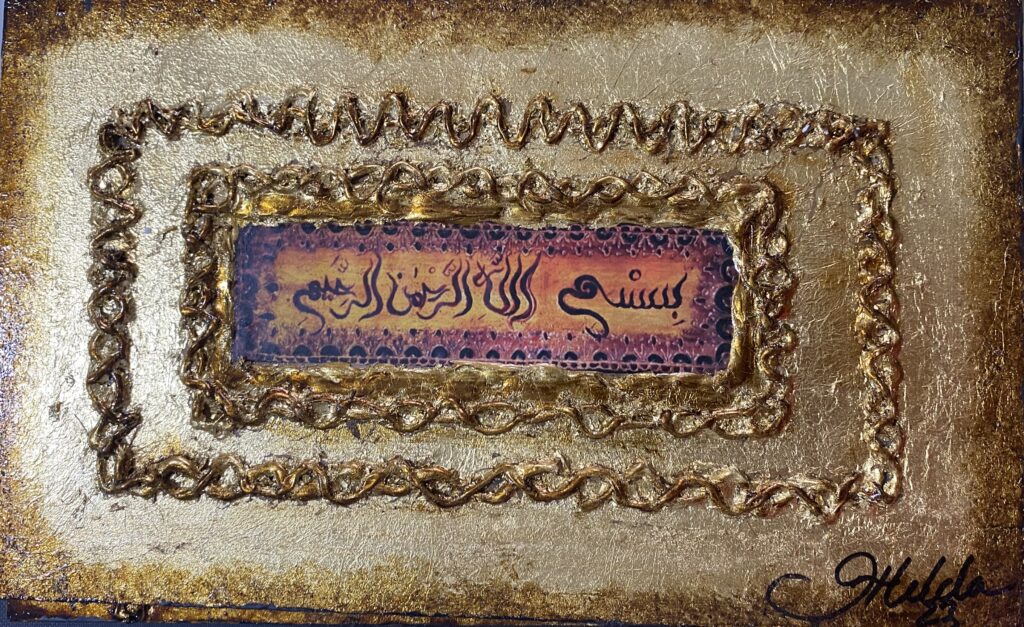 بِسْمِ اللَّهِ الرَّحْمٰنِ الرَّحِيمِ
Hilda
23